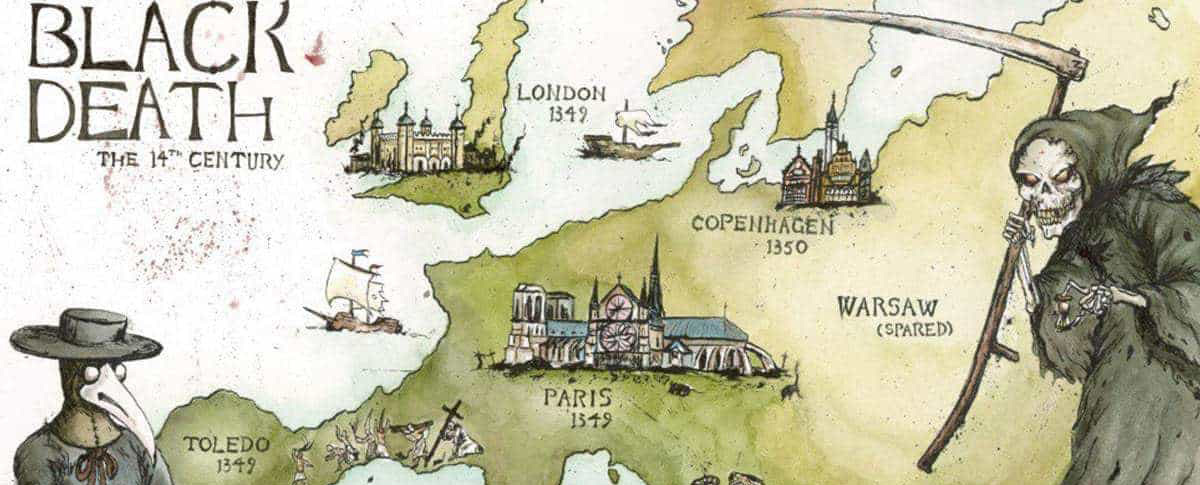 BLACK
DEATH
THE 14TH CENTURY
LONDON
1349
COPENHAGEN
1350
WARSAW
(SPARED)
PARIS
1349
TOLEDO
1349